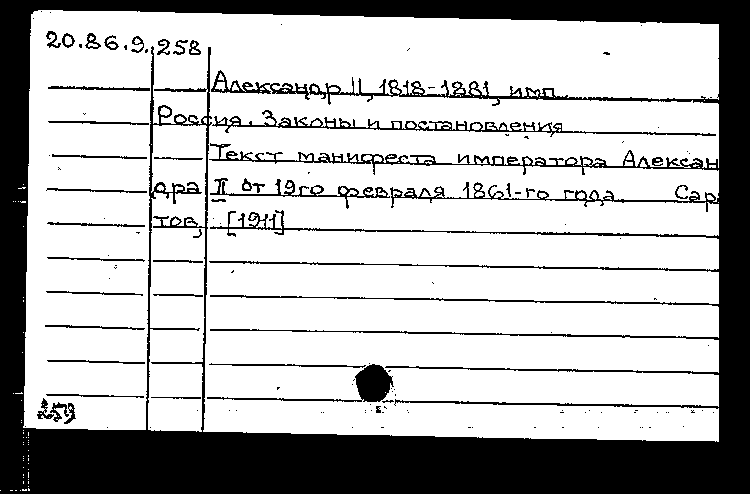 20.86.9.258
Александр II, 1818-1881, имп.
Россия. Законы и постановления
Текст манифеста императора Алексан
дра II от 19го февраля 1861-го года. Сара
тов, [1911]
259